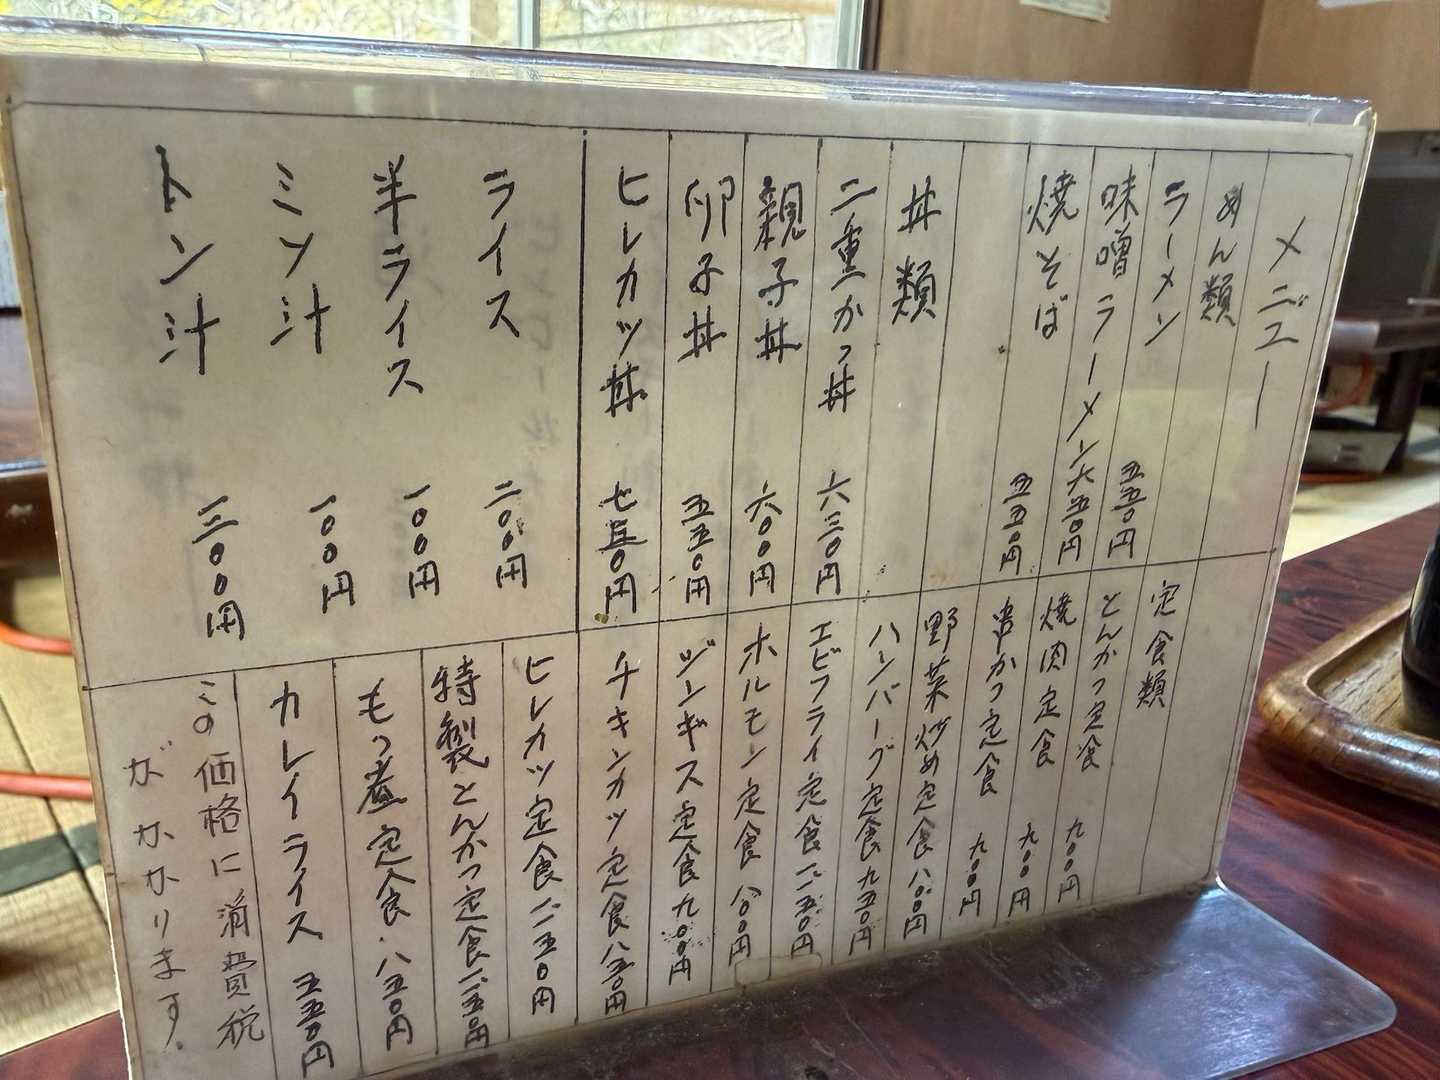 メニュー
めん類
ラーメン 五五〇円
味噌ラーメン 六五〇円
焼そば 五五〇円
丼類
二重かつ丼 六三〇円
親子丼 六〇〇円
卵子丼 五五〇円
ヒレカツ丼 七五〇円
ライス 二〇〇円
半ライス 一〇〇円
ミソ汁 一〇〇円
トン汁 三〇〇円
定食類
とんかつ定食 九〇〇円
焼肉定食 九〇〇円
串かつ定食 九〇〇円
野菜炒め定食 八〇〇円
ハンバーグ定食 九五〇円
エビフライ定食 一、一五〇円
ホルモン定食 八〇〇円
ジンギス定食 九〇〇円
チキンカツ定食 八五〇円
ヒレカツ定食 一、一五〇円
特製とんかつ定食
もつ煮定食 八五〇円
カレイライス 五五〇円
この価格に消費税
がかかります.